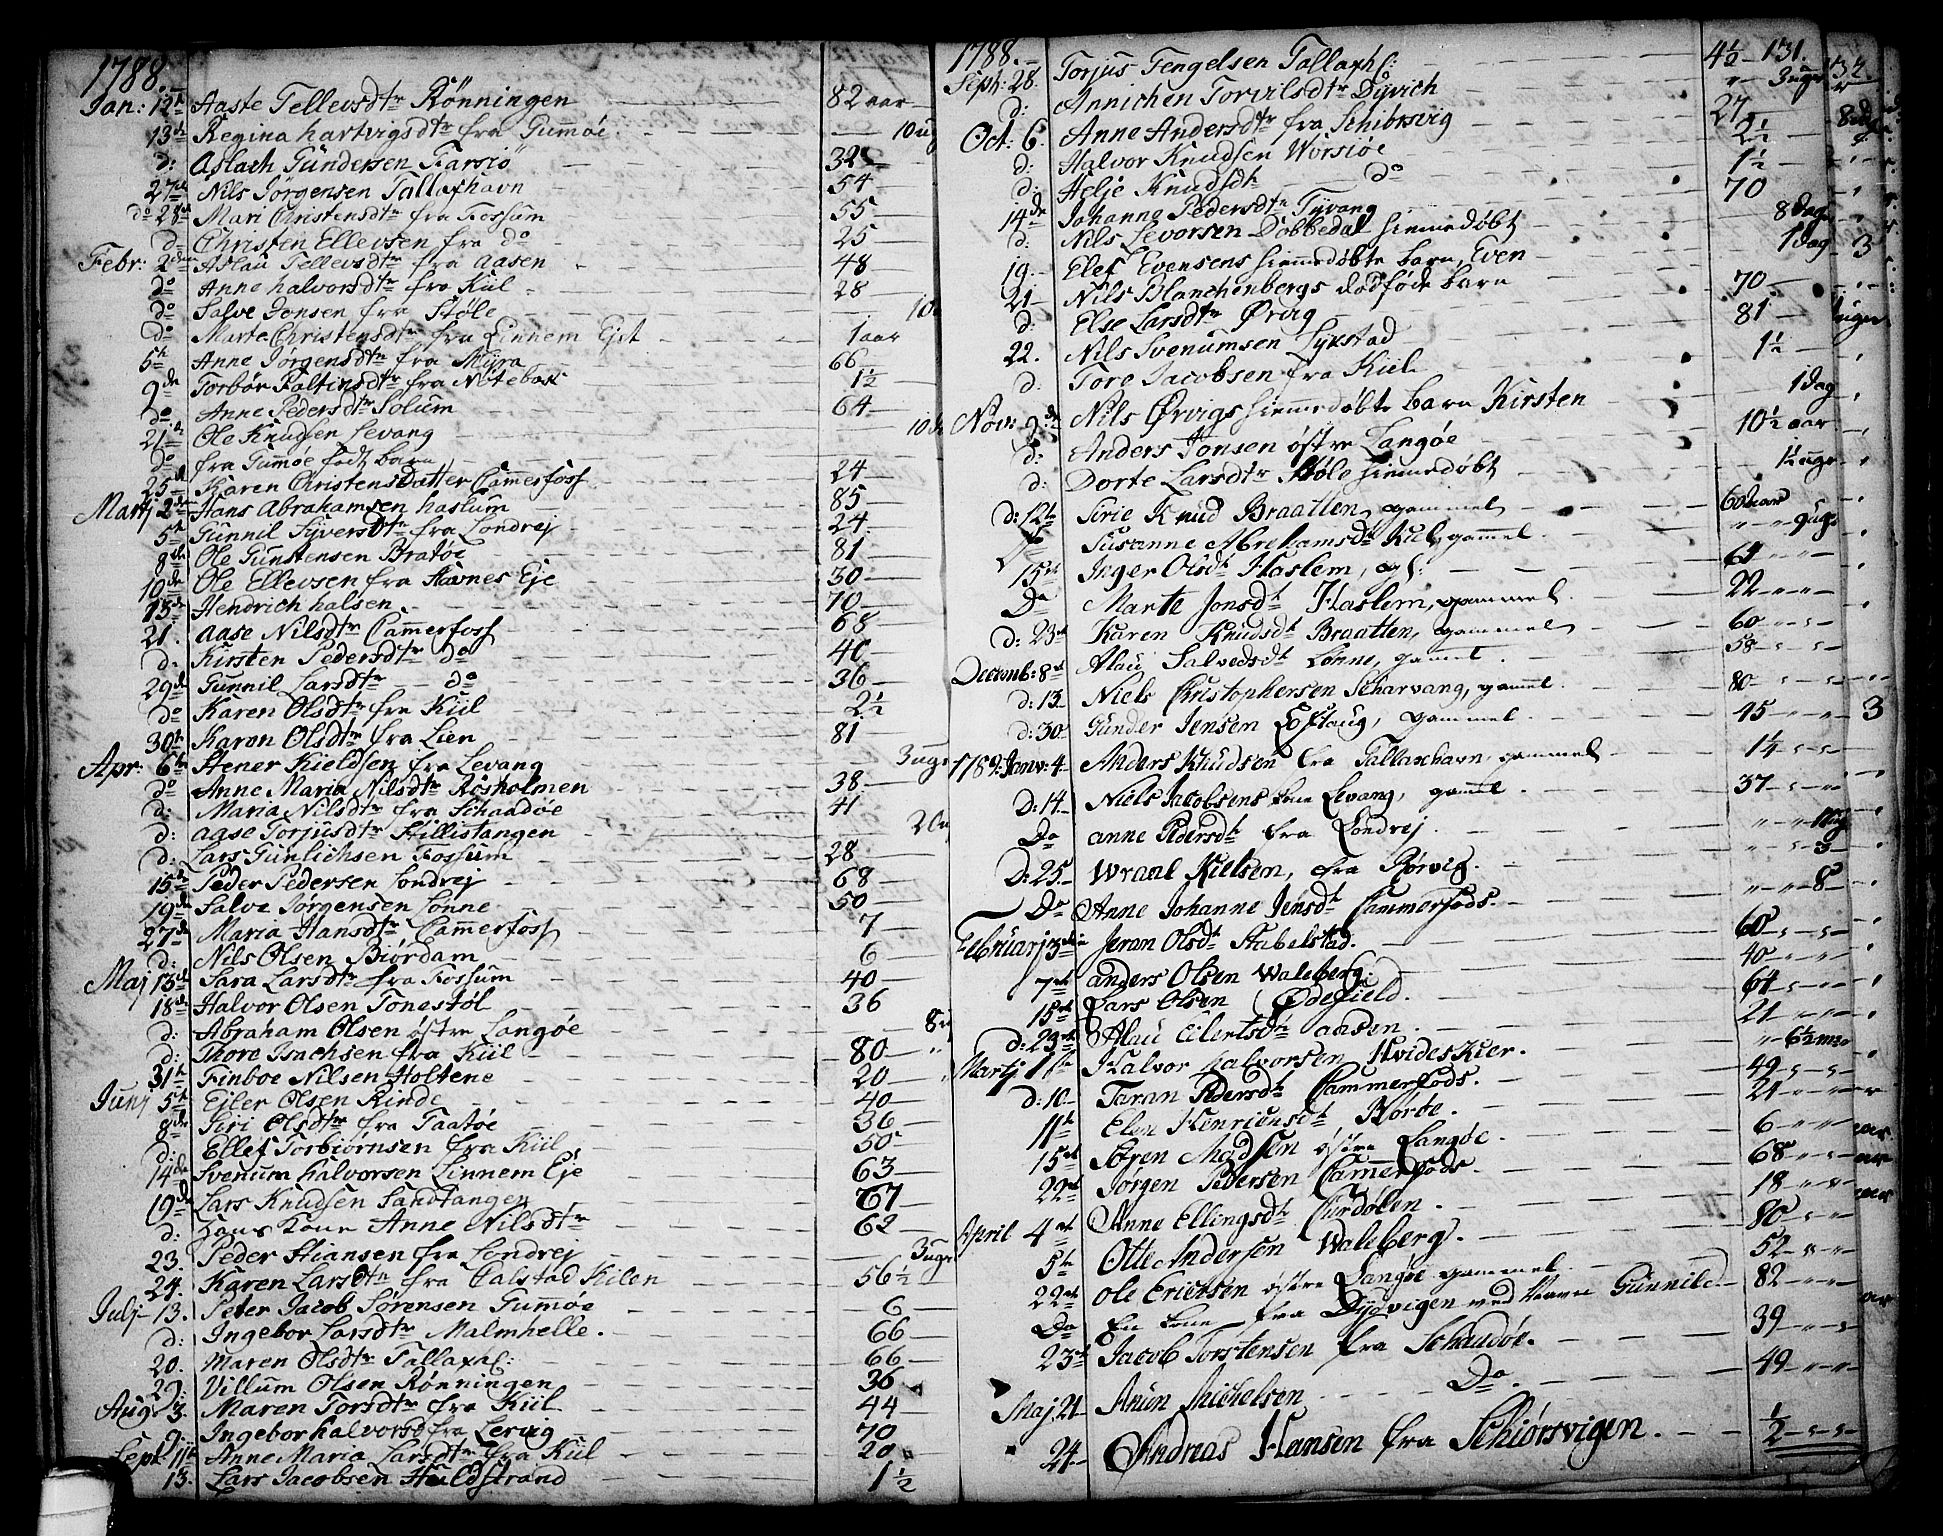 1788.
Jan: 12t Aaste Tellevsdtr Rönningen 82 aar
13de Regina hartvigsdtr fra Gumöe. 10 ug
d: Aslach Gundersen Farsiö 32
27de Nils Jörgensen Tallaxhavn 54
do 28de Mari Christensdtr fra Fossum 55
d: Christen Ellevsen fra do 25
Febr: 2den Aslau Tellevsdtr fra Aasen 48
do Anne halvorsdtr fra Kiil 28
do Salve Jonsen fra Støle
do Marte Christensdtr fra Linnem Ejet 1 aar
5th Anne Jörgensdtr fra Myra 66
9de Torbör Faltinsdtr fra Notebox 1½
do Anne Pedersdtr Solum 64
21de Ole Knudsen Levang
do fra Gumöe födt barn
25de Karen Christensdatter Cammerfoss 24
Martj 2den Hans Abrahamsen haslum 85
5th Gunnil Syversdtr fra Londrej 24
8de Ole Gunstensen Bratöe 81
10de Ole Ellevsen fra Havnes Eje 30
13de Hendrich halsen 70
21. Aase Nilsdtr Cammerfoss 68
d. Kirsten Pedersdtr do 40
29de Gunnil Larsdtr do 36
do Karen Olsdtr fra Kiil 2½
30th Karen Olsdtr fra Lien 81
Apr: 6te Stener Kieldsen fra Levang 3 ugr
do Anne Maria Nilsdtr Rösholmen 38
d: Maria Nilsdtr fra Schaadöe 41
d: Aase Torjusdtr Stillistangen
d: Lars Gunlichsen Fossum 28
15de Peder Pedersen Londrej 68
19de Salve Jörgensen Lönne 50
27de Maria Hansdtr Cammerfoss 7
d: Nils Olsen Biördam 6
Maj 13de Sara Larsdtr fra Fossum 40
18de Halvor Olsen Tonestöl 36
d: Abraham Olsen östre Langöe
d: Thore Isachsen fra Kiil 80
31te Finboe Nilsen Holtene 20
Junj 5te Ejler Olsen Rinde 40
8de Siri Olsdtr fra Taatöe 36
d: Ellef Torbiörnsen fra Kiil 50
14de Svenum halvorsen Linnem Eje 63
19de Lars Knudsen Sandtangen 67
d: hans kone Anne Nilsdtr 62
23. Peder Stiansen fra Londrej 3 ugr
24. Karen Larsdtr fra Calstad Kilen 56½
Julj 13. Peter Jacob Sörensen Gumöe 6
d: Ingebor Larsdtr Malmhelle. 66
20. Maren Olsdtr Tallaxh: 66
29: Villum Olsen Rönningen 36
Aug: 3. Maren Torsdtr fra Kiil 44
9. Ingebor halvorsd fra Lervig 70
Sept 11te Anne Maria Larsdtr fra Kiil 20
13. Lars Jacobsen Huldstrand 1½
1788.
131.
132.
Torjus Tengelsen Tallaxh: 4½
Sept: 28. Annichen Torvilsdtr Dyvich 3 ugr
d: Anne Andersdtr fra Schibsvig 27
Oct: 6. Halvor Knudsen Vorsiöe 2½
d: Helje Knudsdtr do 1½
d: Johanne Pedersdtr Tyvang 70
14de Nils Levorsen Dobbedal hiemmedøbt 8 dage
d: Elef Evensens hiemmedøbte barn, Even 1 dag
19. Nils Blanchenbergs dødføde barn
21 Else Larsdtr Ørvig 70
d: Nils Svenumsen Lykstad 81
22. Tore Jacobsen fra Kiil 1½
d:
Nov: 2de Nils Ørvigs hiemmedøbte barn Kirsten 1 dag
d: Anders Jonsen östre Langöe 10½ aar
d: Dorte Larsdtr Støle hiemmedøbt 1½ ugr
d: 12te Sirie Knud Braatten, gammel 60 aar
Susanne Abrahamsdt Kiil, gammel. 9 ugr
15de Inger Olsdt Haslem, gl: 64
Do Marte Jonsdt Haslem, gammel 22
d: 23de Karen Knudsdt Braatten, gammel 60
Decemb: 8de Alau Salvedsdt Lönne, gammel. 58
d: 13. Niels Christophersen Scharvang, gammel. 80
d: 30. Gunder Jensen Löfthaug, gammel. 45
1789. Janv: 4. Anders Knudsen fra Tallaxhavn, gammel 1¼
D: 14. Niels Jacobsens kone Levang, gammel 37
Do anne Pedersdt fra Londrej.
D: 25. Wraal Nielsen, fra Rörvig. 3
Do Anne Johanne Jensdt Cammerfods. 8
Februarj 3die Jeran Olsdt Stabelstad. 60
7de anders Olsen Waleberg. 40
15de Lars Olsen Ødefield. 64
d: 23de Alau Eilertsdt aasen. 21
Martj 1ste Halvor halvorsen Hvideskier. 6½ m
d: 10. Taran Pedersdt Cammerfods. 49
11te Elen Henricsdt Röröe. 21
15de Sören Madsen östre Langöe. 6
22de Jörgen Pedersen Cammerfods. 68
April 4de Anne Ellingsdt Furdølen. 18
5te Otte Andersen Waleberg. 80
22de Ole Ericsen östre Langöe gammel. 52
Do En kone fra Dydvigen med Navn Gunnild 82
23de Jacob Torstensen fra Schaadöe. 39
Maj 21 Anun Michelsen Do. 49
24 Andreas Hansen fra Schiörsvigen. ½